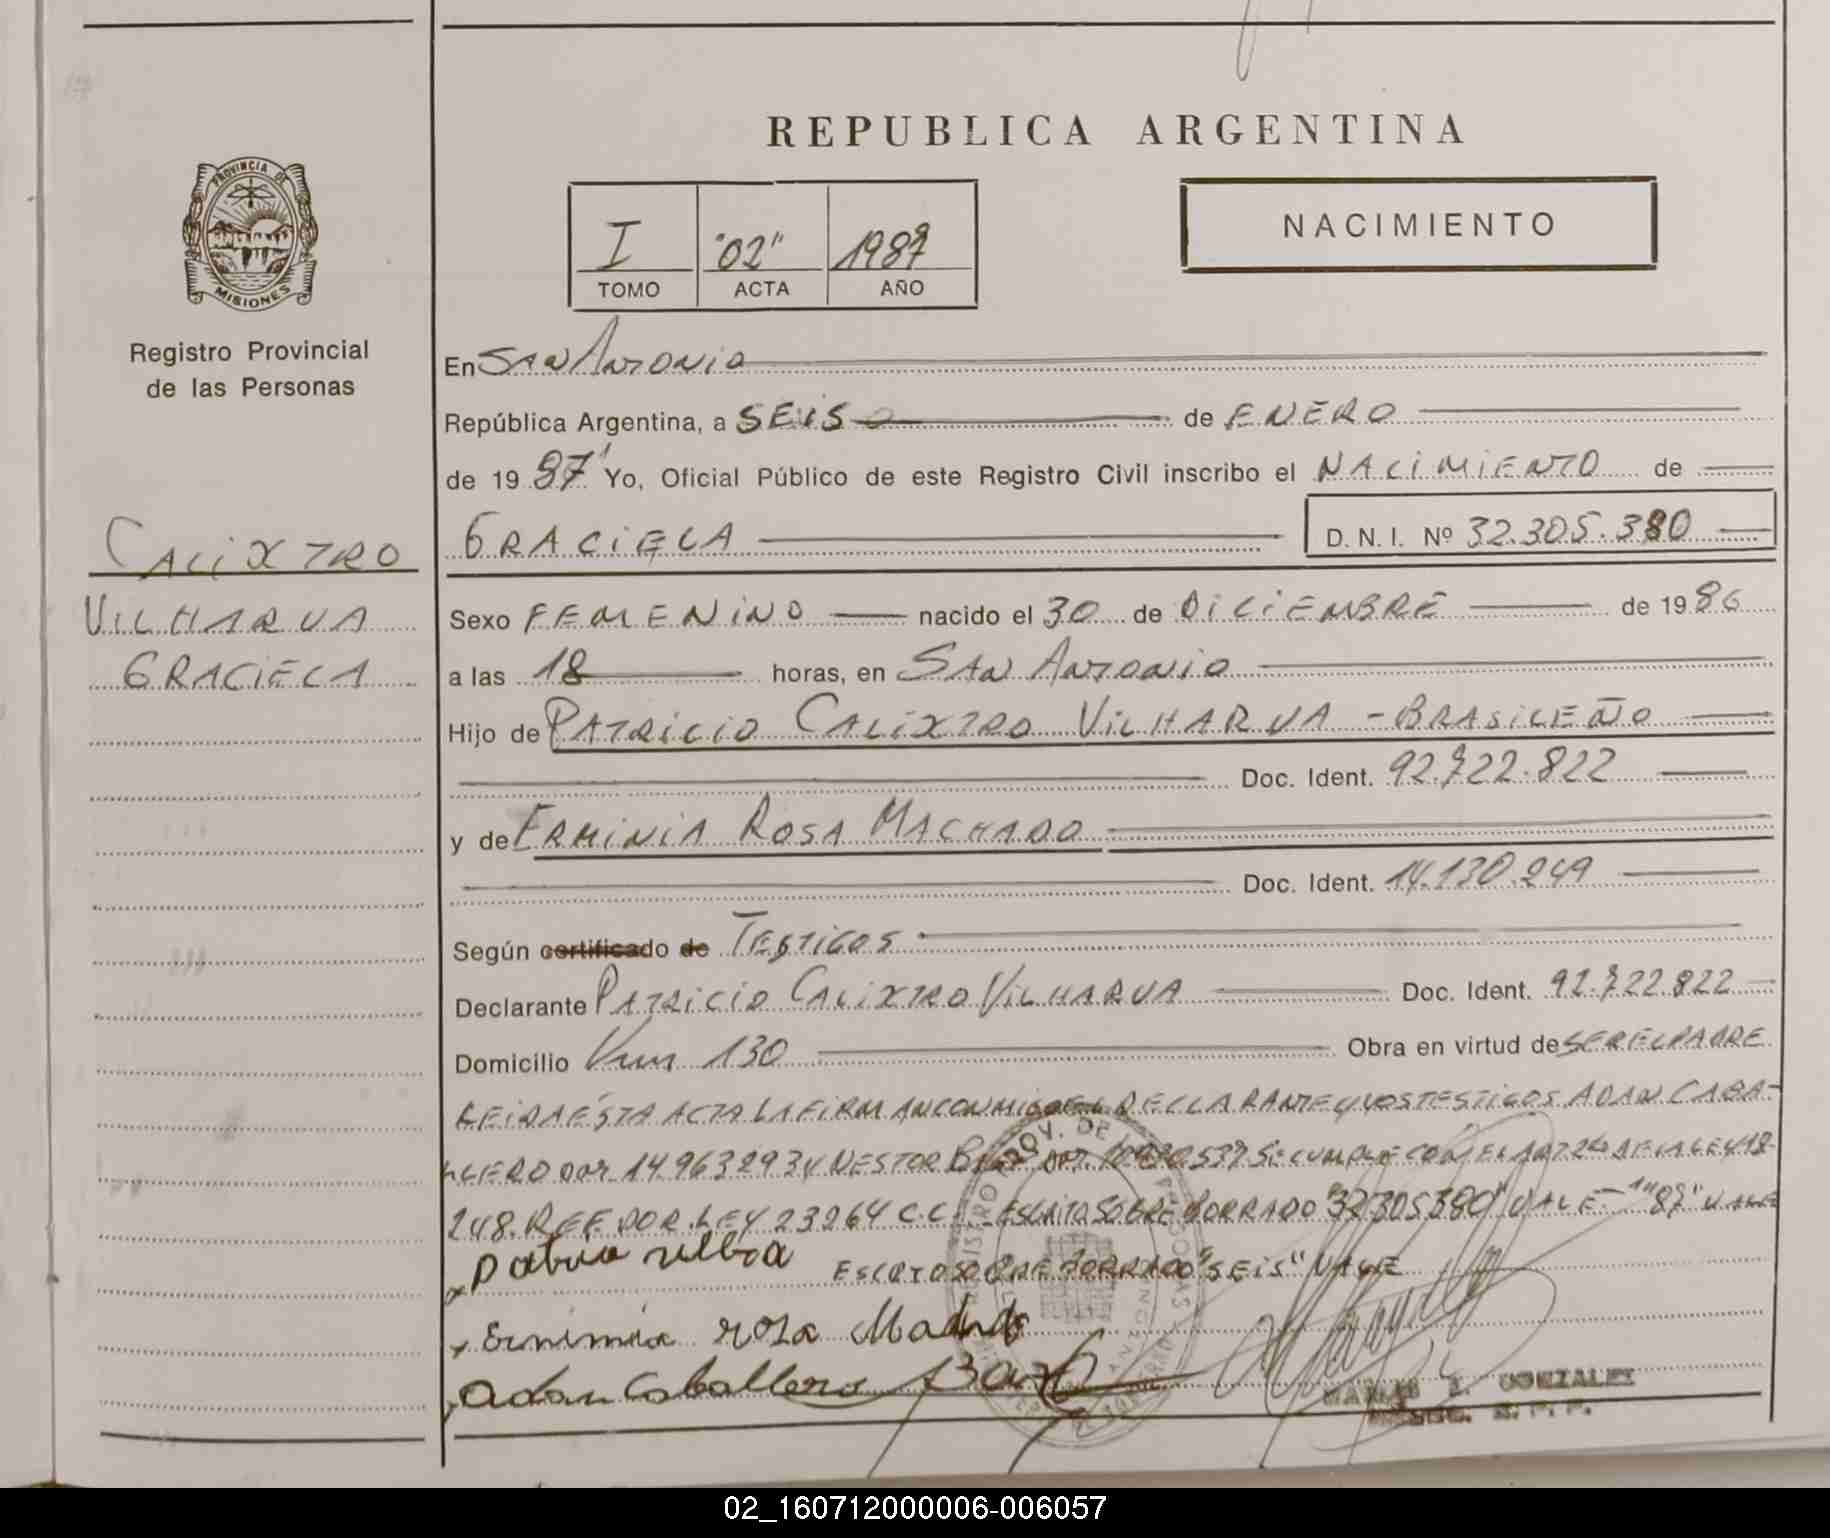 REPUBLICA ARGENTINA
NACIMIENTO
I "02" 1987
TOMO ACTA AÑO
PROVINCIA DE
MISIONES
Registro Provincial
de las Personas
CALIXTRO
VILHARVA
GRACIELA
En SAN ANTONIO
República Argentina, a SEIS de ENERO
de 19 87 Yo, Oficial Público de este Registro Civil inscribo el NACIMIENTO de
GRACIELA D. N. I. Nº 32.305.380
Sexo FEMENINO nacido el 30 de DICIEMBRE de 19 86
a las 18 horas, en SAN ANTONIO
Hijo de PATRICIO CALIXTRO VILHARVA - BRASILEÑO
Doc. Ident. 92.722.822
y de ERMINIA ROSA MACHADO
Doc. Ident. 14.130.249
Según certificado de TESTIGOS
Declarante PATRICIO CALIXTRO VILHARVA Doc. Ident. 92.722.822
Domicilio Km 130 Obra en virtud de SER EL PADRE
LEIDA ESTA ACTA LA FIRMAN CONMIGO EL DECLARANTE Y LOS TESTIGOS ADAN CABA-
LLERO DOC 14963293 Y NESTOR SE CUMPLE CON EL ART 24 DE LA LEY 18-
248. REF. POR. LEY 23264 C.C. - ESCRITO SOBRE BORRADO "32305380" VALE - "87" VALE
ESCRITO SOBRE BORRADO "SEIS" VALE
x Erminia rosa Machado
Adan Caballero
GONZALEZ
02_160712000006-006057